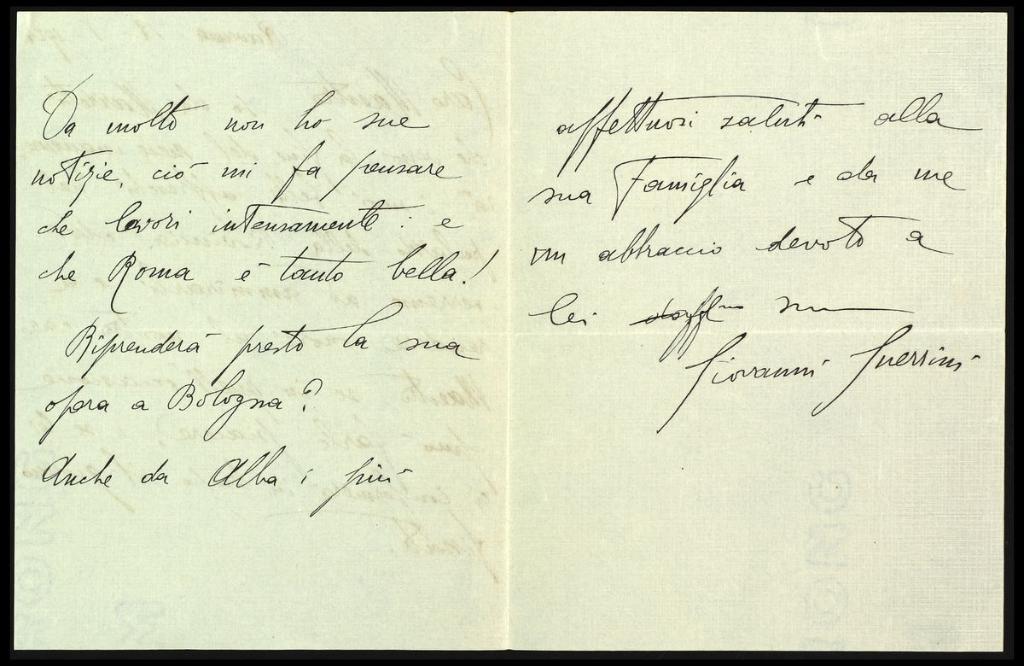 Da molto non ho sue
notizie, ciò mi fa pensare
che lavori intensamente: e
che Roma è tanto bella!
Riprenderà presto la sua
opera a Bologna?
Anche da Alba i più
affettuosi saluti alla
sua Famiglia e da me
un abbraccio devoto a
lei suo
Giovanni Guerrini